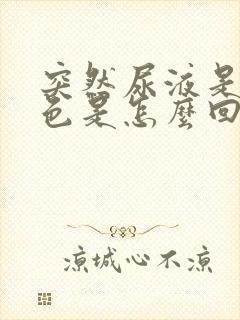 突然尿液是
色是怎麼回
涼城心不涼